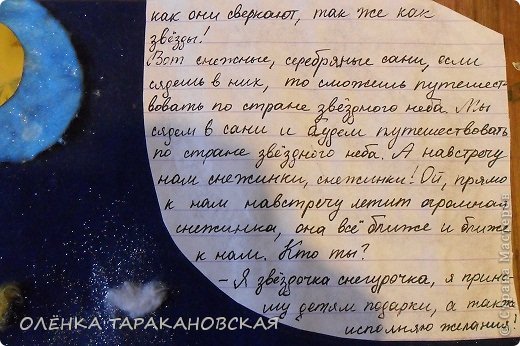 как они сверкают, так же как
звёзды!
Вот снежные, серебряные сани, если
сядешь в них, то сможешь путешест-
вовать по стране звёздного неба. Мы
сядем в сани и будем путешествовать
по стране звёздного неба. А навстречу
нам снежинки, снежинки! Ой, прямо
к нам навстречу летит огромная
снежинка, она всё ближе и ближе
к нам. Кто ты?
- Я звёздочка снегурочка, я прине-
су детям подарки, а также
исполняю желания!
ОЛЁНКА ТАРАКАНОВСКАЯ
© Страна Мастеров